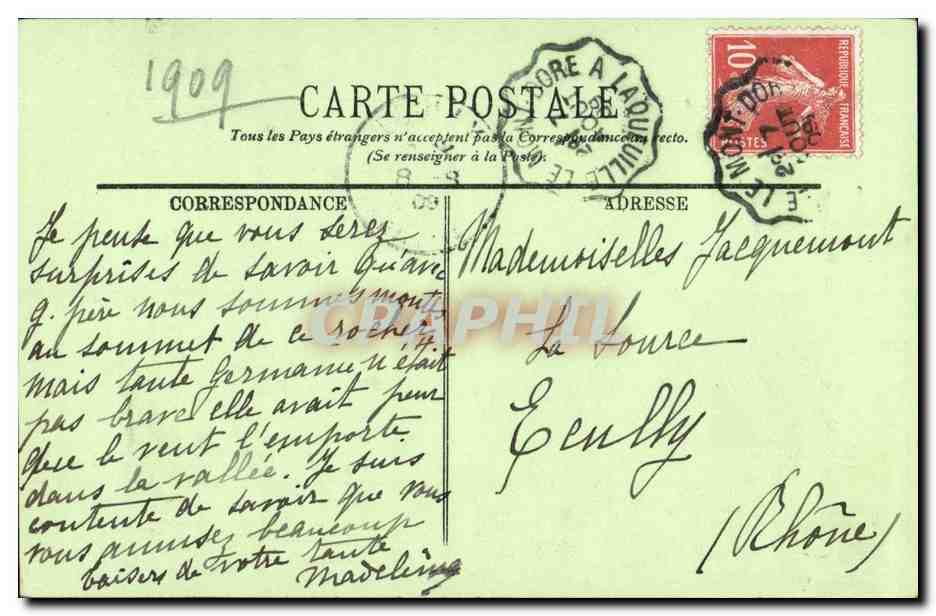 1909
CARTE POSTALE
Tous les Pays étrangers n'acceptent pas la Correspondance au recto.
(Se renseigner à la Poste).
LE MONT-DORE A LAQUEUILLE
RÉPUBLIQUE FRANÇAISE
10
POSTES
LE MONT-DOR
8-8
09
CORRESPONDANCE
Je pense que vous serez
surprises de savoir qu'avec
g. père nous sommes montés
au sommet de ce rocher,
mais tante Germaine n'était
pas brave elle avait peur
que le vent l'emporte
dans la vallée. Je suis
contente de savoir que vous
vous amusez beaucoup
baisers de votre tante
Madeleine
ADRESSE
Mademoiselles Jacquemont
La Source
Ecully
(Rhône)
CPAPHIL